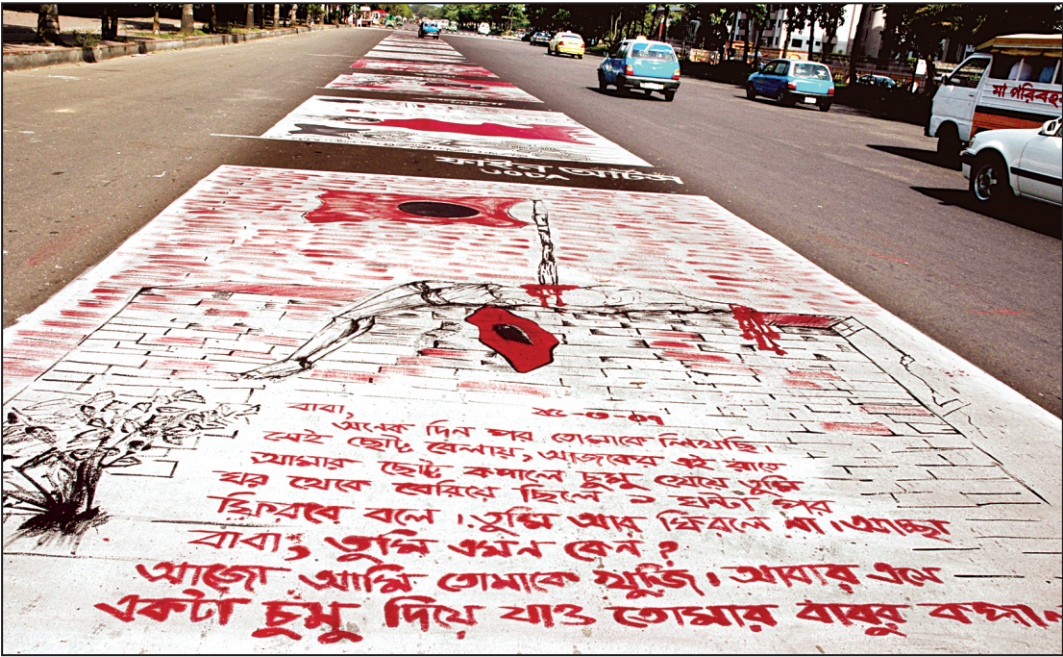 মা পরিবহ
বাবা, ২৫-৩-০৭
অনেক দিন পর তোমাকে লিখছি।
সেই ছোট্ট বেলায়, আজকের এই রাতে
আমার ছোট্ট কপালে চুমু খেয়ে তুমি
ঘর থেকে বেরিয়ে ছিলে ১ ঘন্টা পর
ফিরবে বলে। তুমি আর ফিরলে না। আচ্ছা
বাবা, তুমি এমন কেন?
আজো আমি তোমাকে খুজি। আবার এসে
একটা চুমু দিয়ে যাও তোমার বাবুর